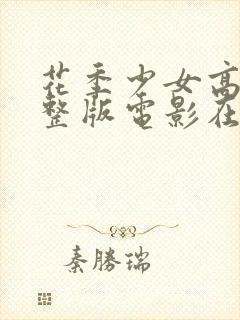 花季少女高
整版電影在
秦勝瑞